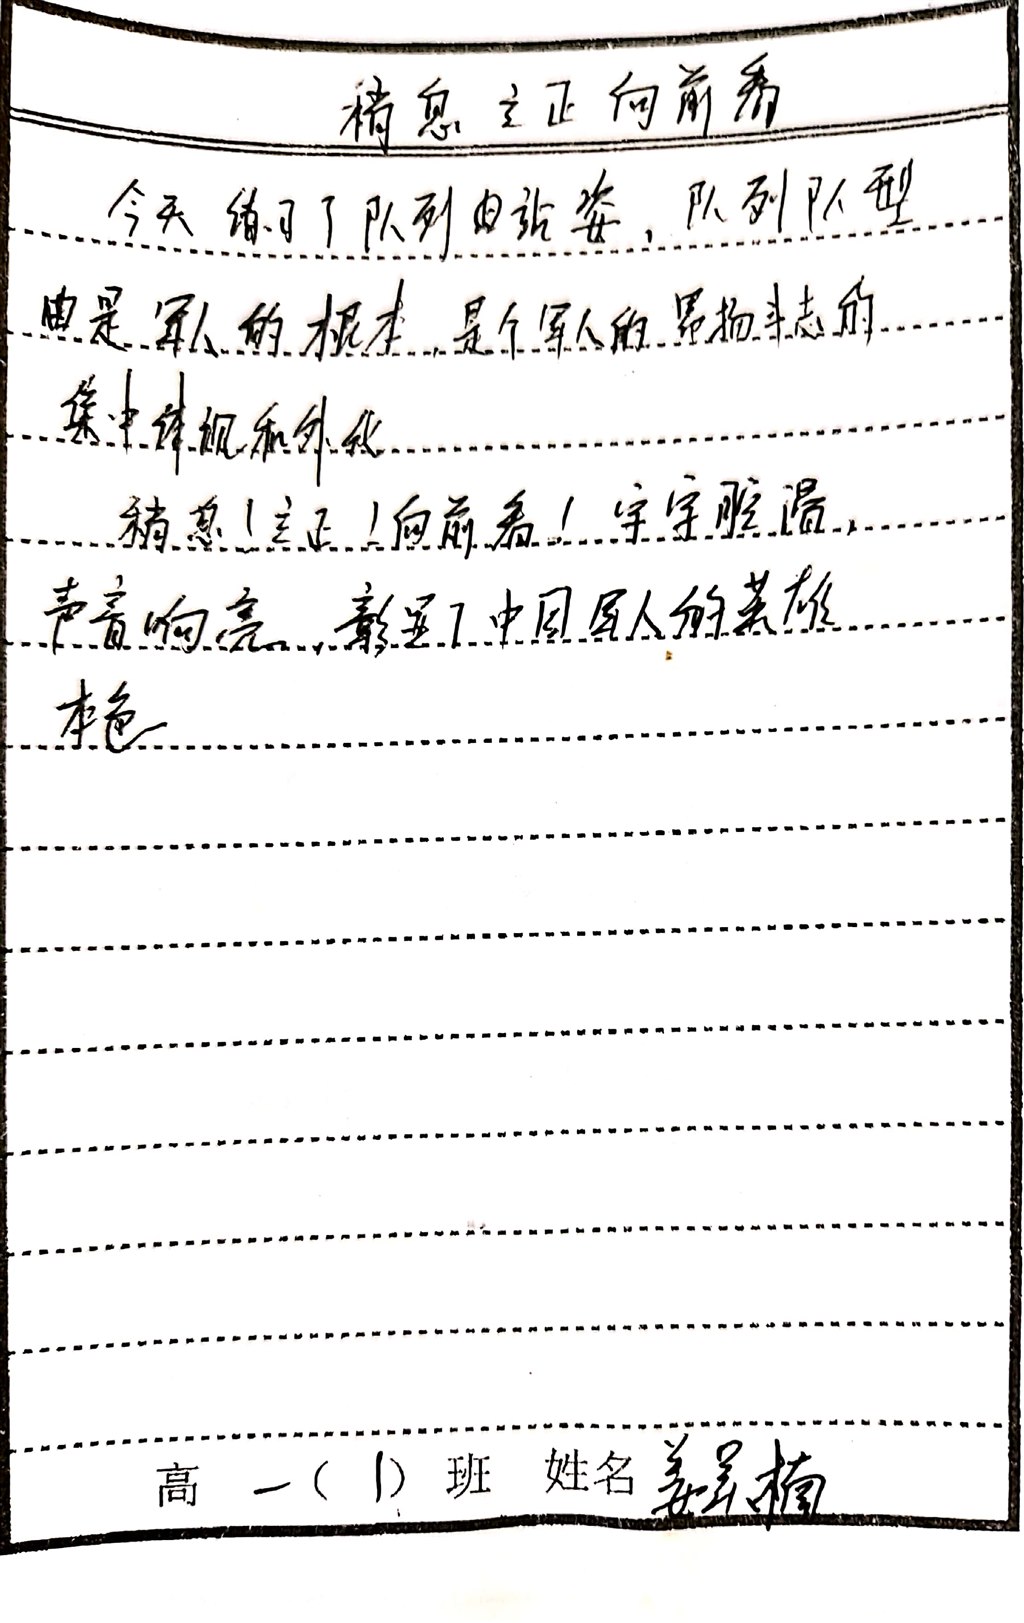 稍息立正向前看
今天练习了队列由站姿，队列队型
由是军人的根本，是个军人的昂扬斗志的
集中体现和外化
稍息！立正！向前看！字字腔温，
声音响亮，彰显了中国军人的英雄
本色
高一（1）班 姓名 姜 楠